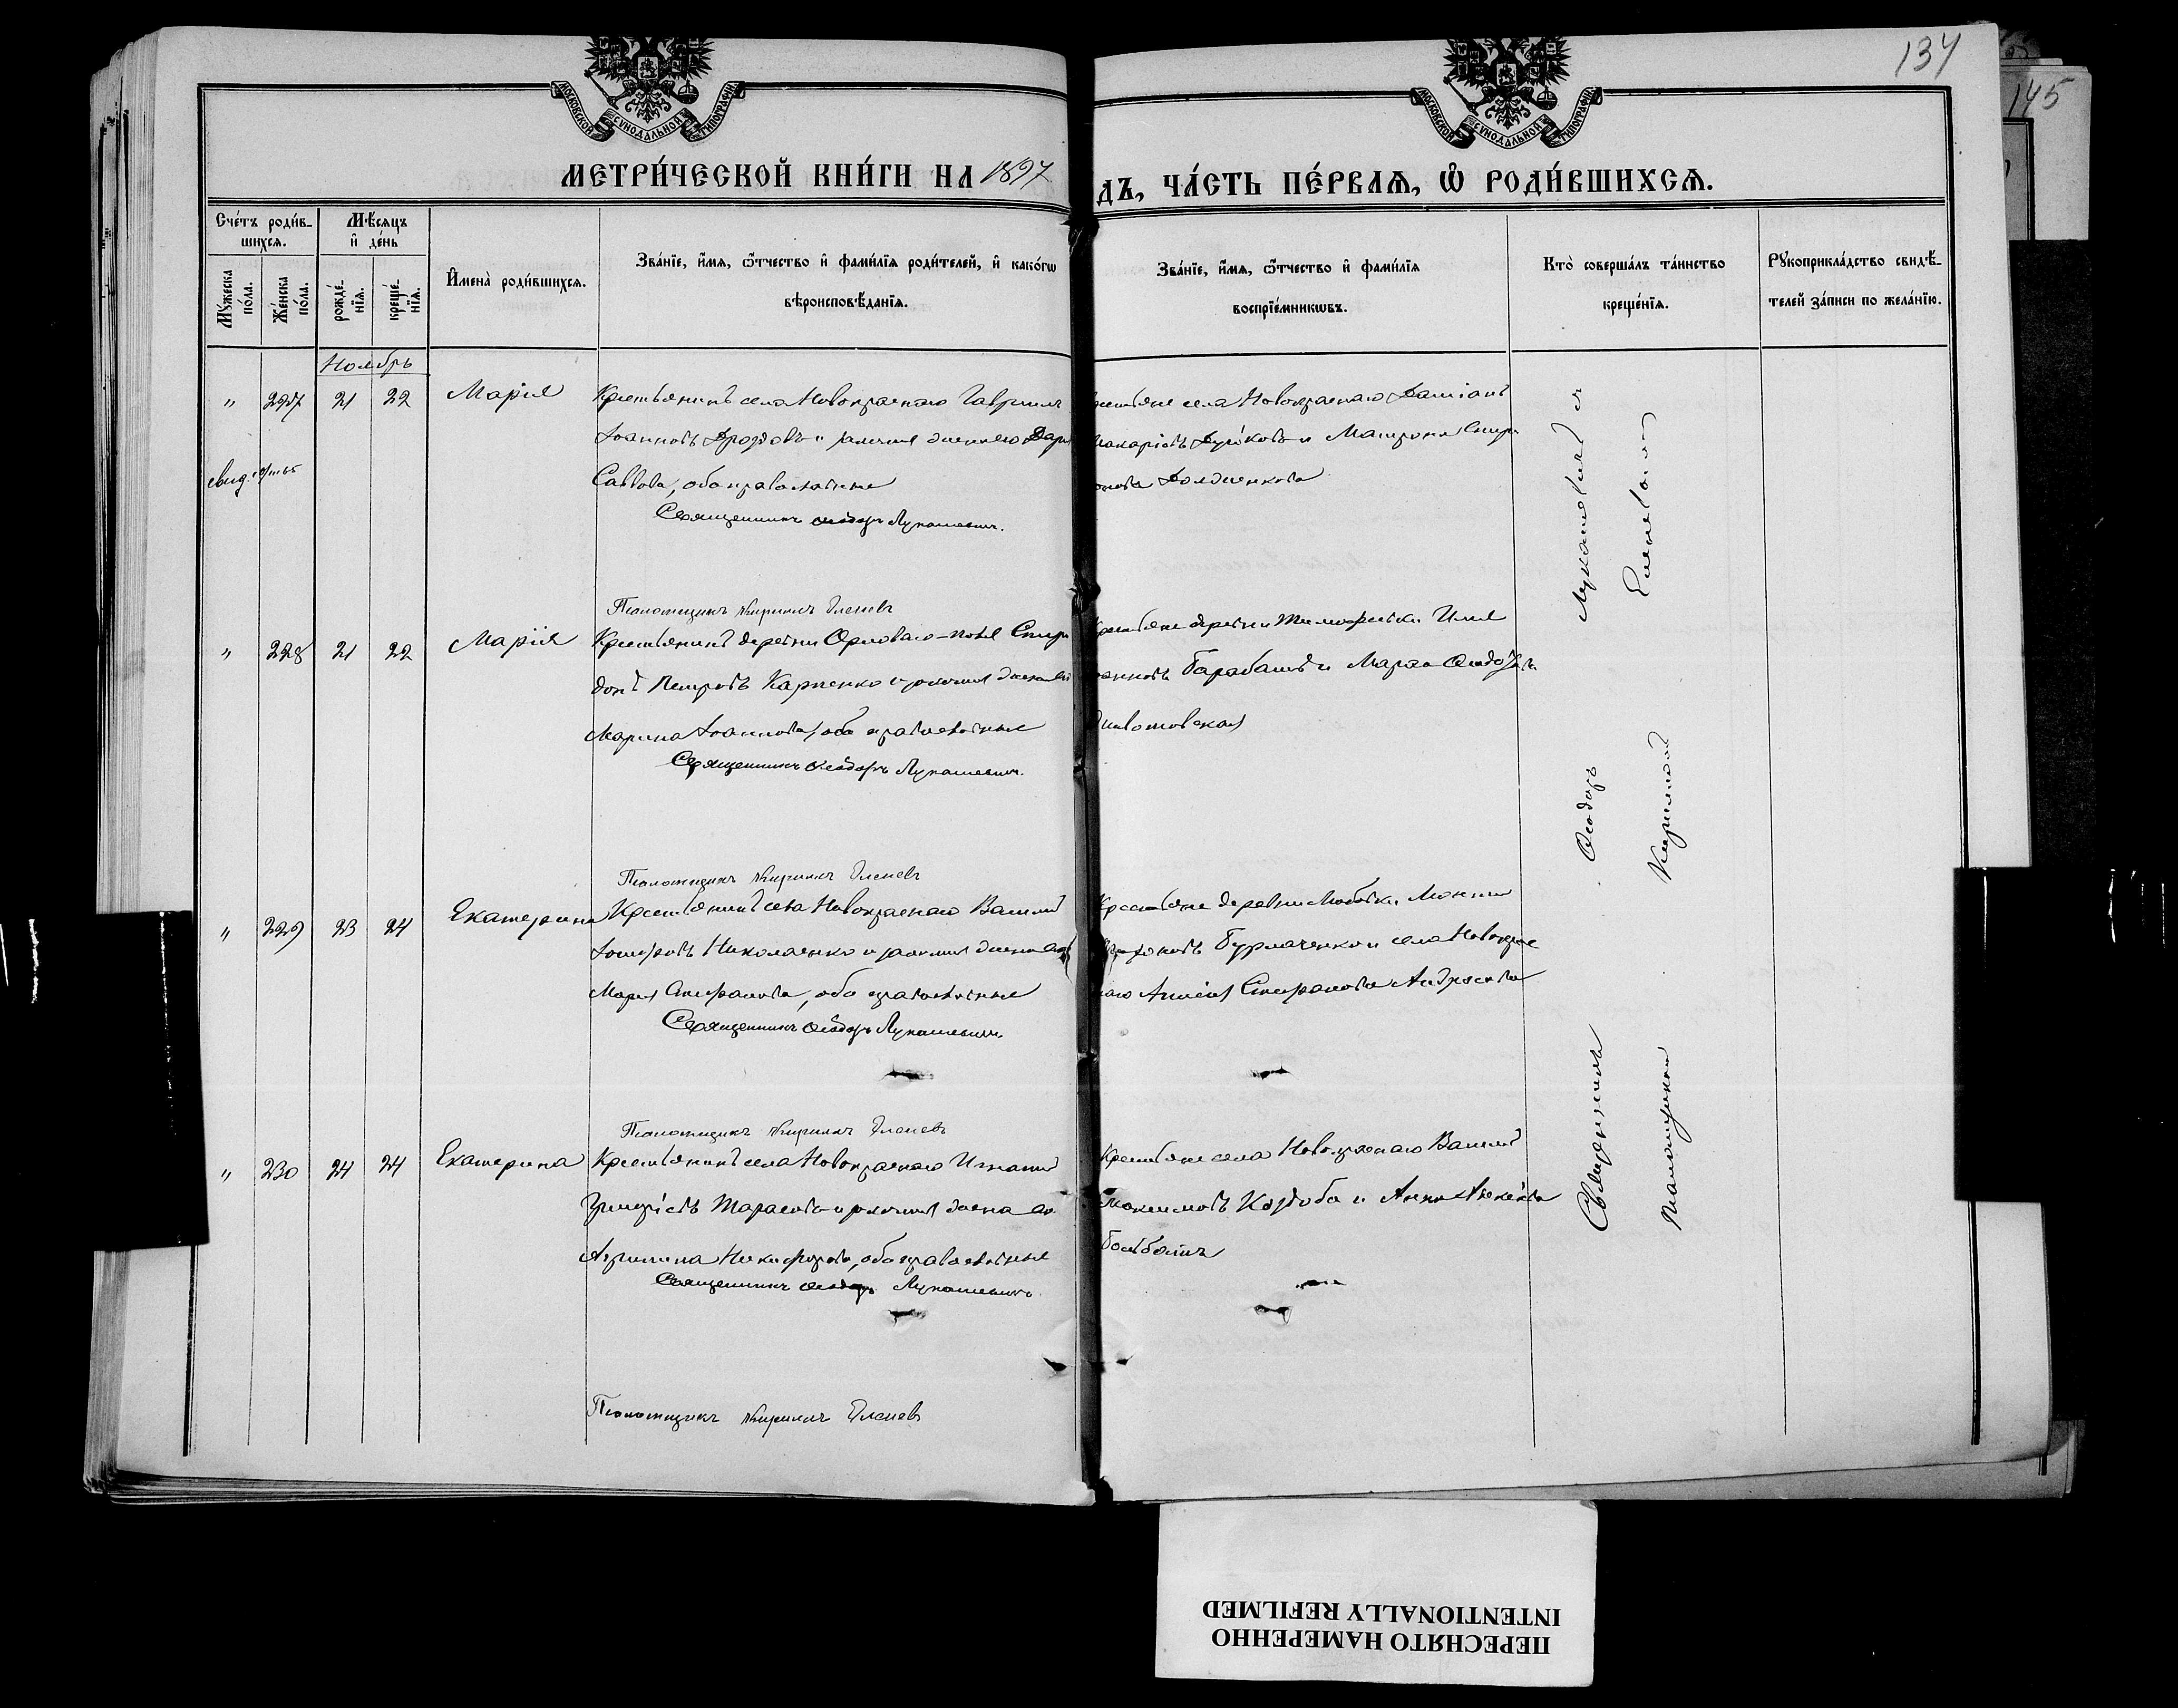 134
145
МОСКОВСКОЙ СУНОДАЛЬНОЙ ТИПОГРАФІИ
МОСКОВСКОЙ СУНОДАЛЬНОЙ ТИПОГРАФІИ
МЕТРИ́ЧЕСКОЙ КНИ́ГИ НА 1897
ДЪ, ЧА́СТЬ ПЕ́РВАѦ, Ѽ РОДИ́ВШИХСѦ.
Сче́тъ роди́в-
шихсѧ.
Мѣ́сѧцъ
и҆ де́нь
Мꙋ́жеска
по́ла.
Же́нска
по́ла.
рожде́-
нїѧ.
креще́-
нїѧ.
И҆мена̀ роди́вшихсѧ.
Зва́нїе, и҆́мѧ, ѻ҆́тчество и҆ фами́лїѧ роди́телей, и҆ како́гѡ
вѣроисповѣ́данїѧ.
Зва́нїе, и҆́мѧ, ѻ҆́тчество и҆ фами́лїѧ
воспрїе́мникѡвъ.
Кто̀ соверша́лъ та́инство
креще́нїѧ.
Рꙋкоприкла́дство свидѣ́-
телей за́писи по жела́нїю.
Ноябрь
" 227 21 22 Марія
Крестьянинъ села Новокраснаго Гавріилъ
Іоанновъ Дроздовъ и законная жена его Дарія
Саввова, оба православные
Священникъ Ѳеодоръ Лукашевичъ.
Псаломщикъ Кириллъ Еленевъ
крестьяне села Новокраснаго Даміанъ
Макаріевъ и Матрона Спири
онова Долженкова
свид.
" 228 21 22 Марія
Крестьянинъ деревни Орловаго-поля Спири
донъ Петровъ Карпенко и законная жена его
Марина Іоаннова, оба православные
Священникъ Ѳеодоръ Лукашевичъ.
Псаломщикъ Кириллъ Еленевъ
Крестьяне деревни Тимофѣевки Илія
Іоанновъ Барабашъ и Марѳа
Животовская
" 229 23 24 Екатерина
Крестьянинъ села Новокраснаго Василій
Іосифовъ Николаенко и законная жена его
Марія Стефанова, оба православные
Священникъ Ѳеодоръ Лукашевичъ.
Псаломщикъ Кириллъ Еленевъ
Крестьяне деревни Любовки
Бурлаченко и села Новокрас
наго Стефанова Андреева
" 230 24 24 Екатерина
Крестьянинъ села Новокраснаго Игнатій
Григоріевъ Тарасовъ и законная жена его
Агрипина Никифорова, оба православные
Священникъ Ѳеодоръ Лукашевичъ
Псаломщикъ Кириллъ Еленевъ
Крестьяне села Новокраснаго Василій
Максимовъ Коздоба и Анна
Священникъ Ѳеодоръ Лукашевичъ съ
Псаломщикомъ Кирилломъ Еленевымъ
ПЕРЕСНЯТО НАМЕРЕННО
INTENTIONALLY REFILMED